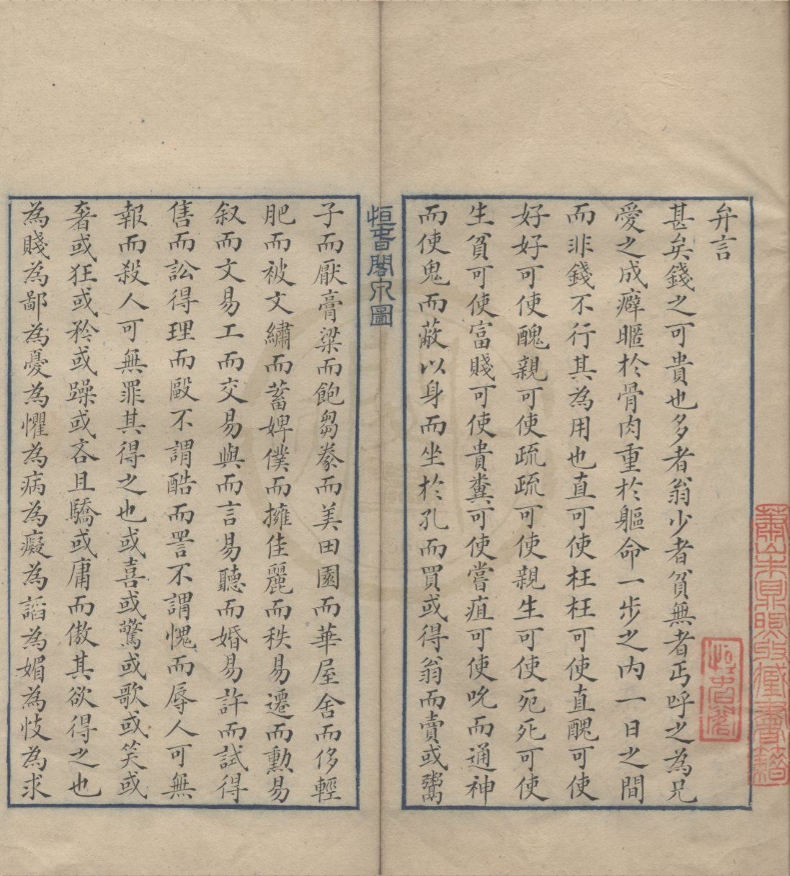 弁言
甚矣錢之可貴也多者翁少者貧無者丐呼之為兄
愛之成癖暱於骨肉重於軀命一步之內一日之間
而非錢不行其為用也直可使枉枉可使直醜可使
好好可使醜親可使疏疏可使親生可使死死可使
生貧可使富賤可使貴糞可使嘗疽可使吮而通神
而使鬼而蔽以身而坐於孔而買或得翁而賣或鬻
恒旾閣泉圖
子而厭膏粱而飽芻豢而美田園而華屋舍而侈輕
肥而被文繡而蓄婢僕而擁佳麗而秩易遷而勳易
叙而文易工而交易與而言易聽而婚易許而試得
售而訟得理而毆不謂酷而詈不謂愧而辱人可無
報而殺人可無罪其得之也或喜或驚或歌或笑或
奢或狂或矜或躁或吝且驕或庸而傲其欲得之也
為賤為鄙為憂為懼為病為癡為諂為媚為忮為求
蕭山朱鼎煦收藏書籍
恒旾閣